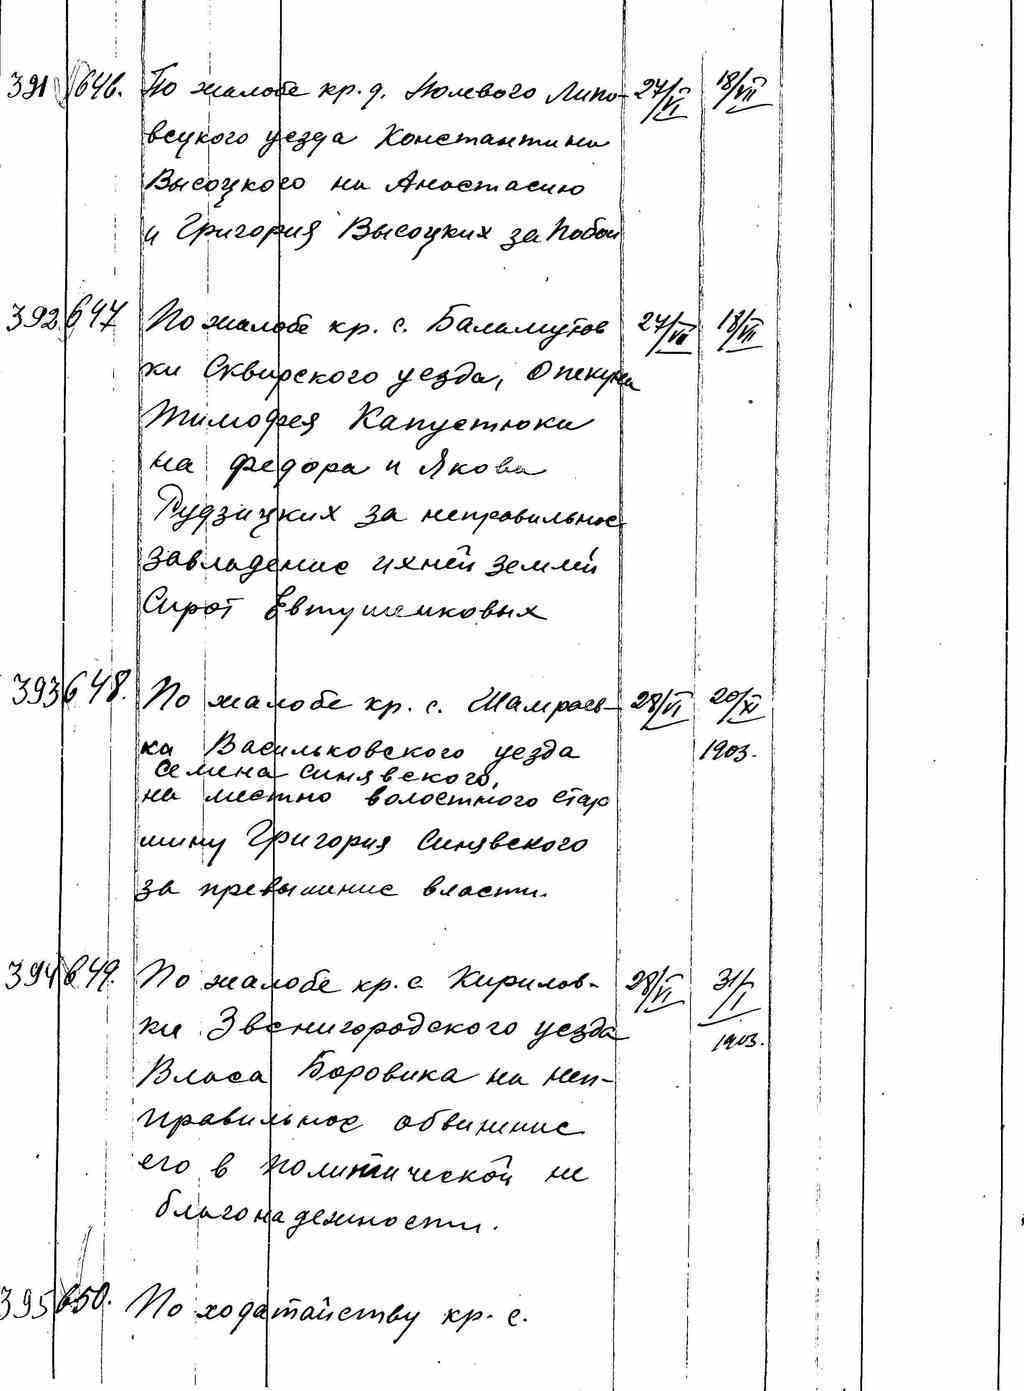 391 646. По жалобе кр. д. Полевого Липо- 27/VI 18/VII
вецкого уезда Константина
Высоцкого на Анастасию
и Григория Высоцких за побои
392 647 По жалобе кр. с. Баламутов 27/VII 18/VII
ки Сквирского уезда, Опекуна
Тимофея Капустюка
на Федора и Якова
Рудзицких за неправильное
завладение ихней землей
Сирот Евтушенковых
393 648. По жалобе кр. с. Шамраев- 28/VI 20/XI
ка Васильковского уезда 1903.
Семена Синявского,
на местно волостного стар
шину Григория Синявского
за превышение власти.
394 649. По жалобе кр. с Кирилов- 28/VI 31/I
ки Звенигородского уезда 1903.
Власа Боровика на неп-
правильное обвинение
его в политической не
благонадежности.
395 650. По ходатайству кр. с.